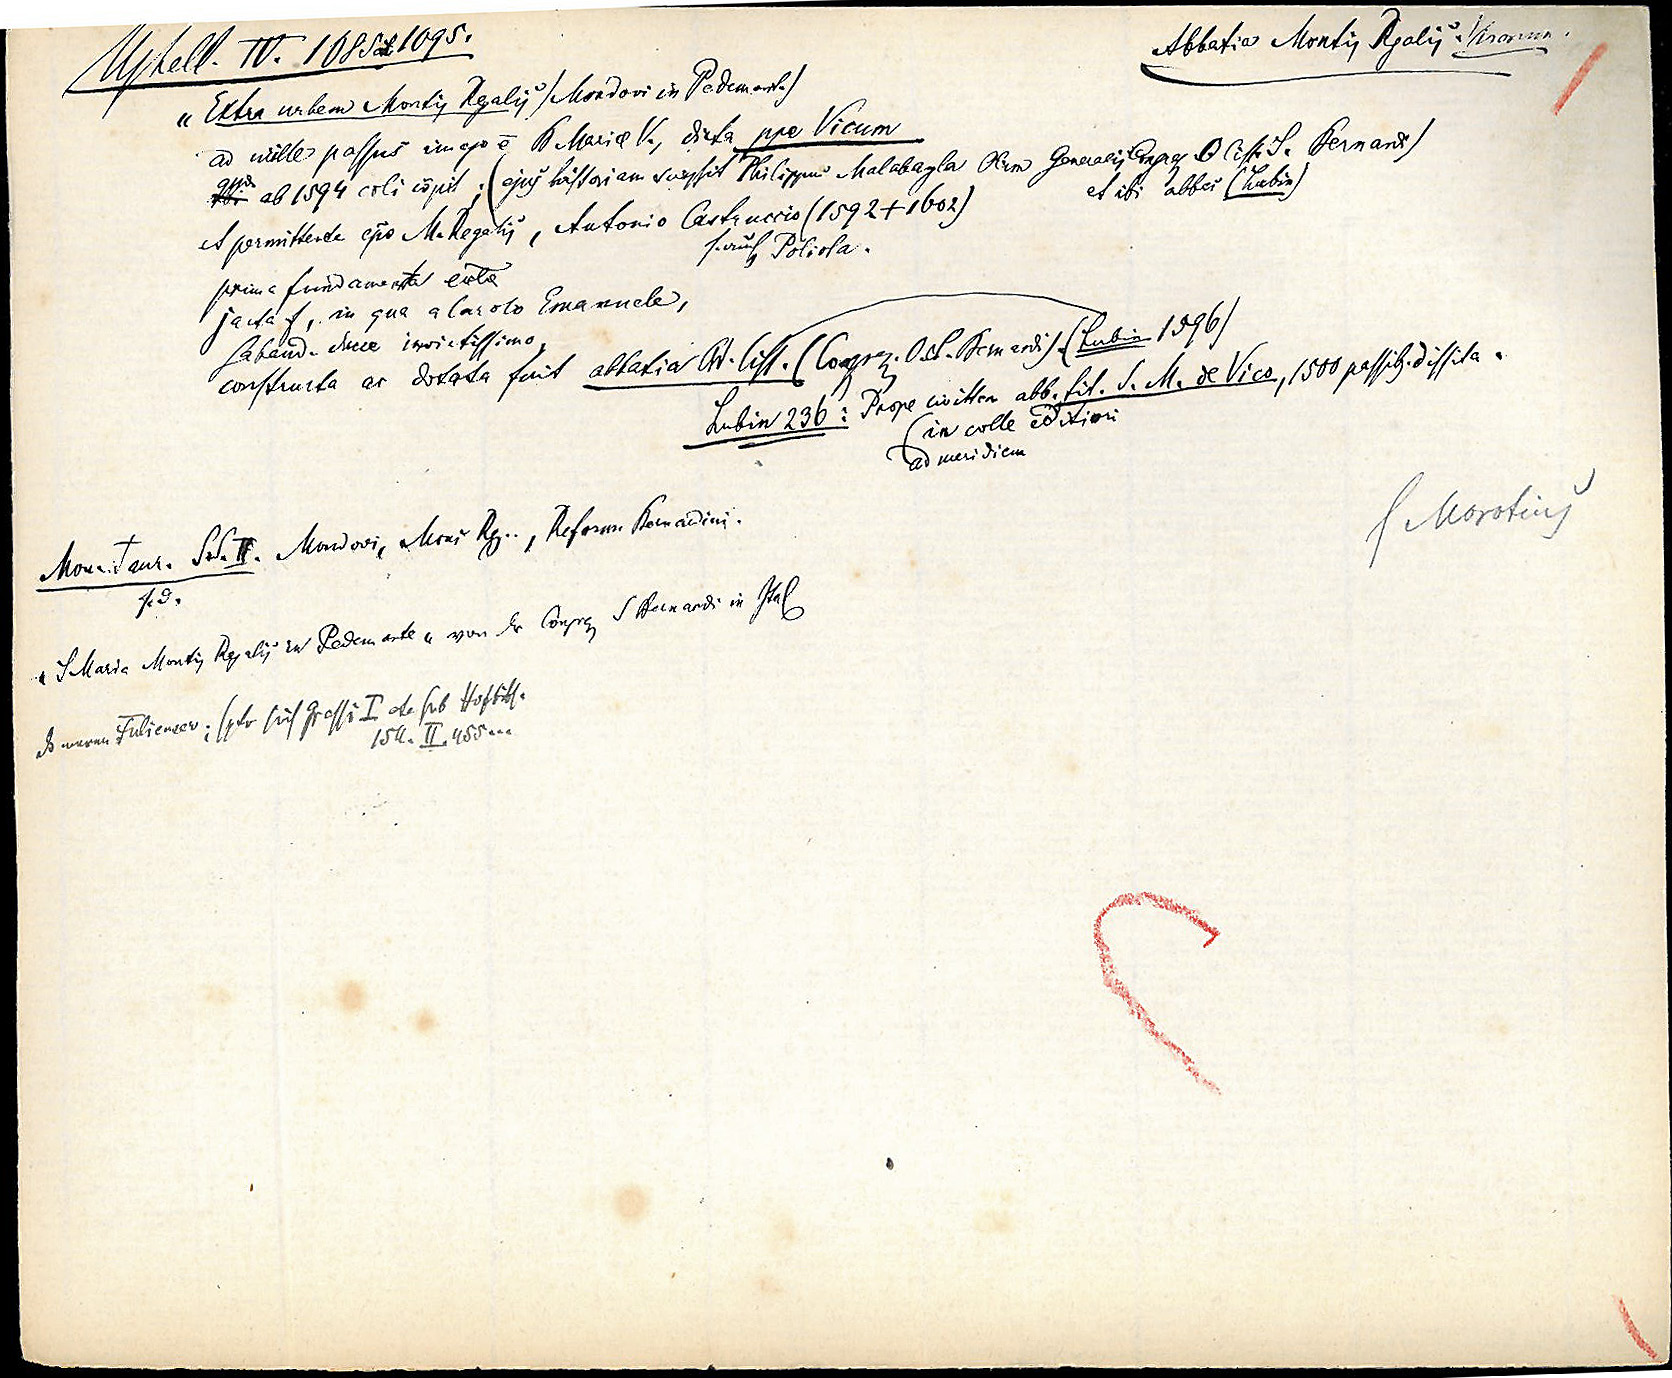 Ughell. IV. 1085 et 1095.
Abbatia Montis Regalis.
„Extra urbem Montis Regalis (Mondovi in Pedemont.)
ad mille passus imago ē B Mariæ V., dicta ppe Vicum
ab 1594 coli cœpit; (ejus historiam scripsit Philippus Malabayla olim Generalis Congreg. O Cist. S. Bernardi)
et ibi abbas (Lubin)
et permittente epo M. Regalis, Antonio Castruccio (1592 + 1602)
s. auch Poliola.
prima fundamenta
jacta st, in qua a Carolo Emanuele,
Sabaud. duce invictissimo,
constructa ac dotata fuit abbatia Od. Cist. (Congreg. O St. Bernardi). (Lubin 1596)
Lubin 236: Prope civitem abb. tit. S. M. de Vico, 1500 passib. dissita.
(in colle editiori
ad meridiem
s Morotius
Mon. Taur. S. II. Mondovi, Mons Reg.., Reform Bernardini.
s. d.
„S Maria Montis Regalis in Pedemonte" von der Congreg S Bernardi in Ital
II. 455...